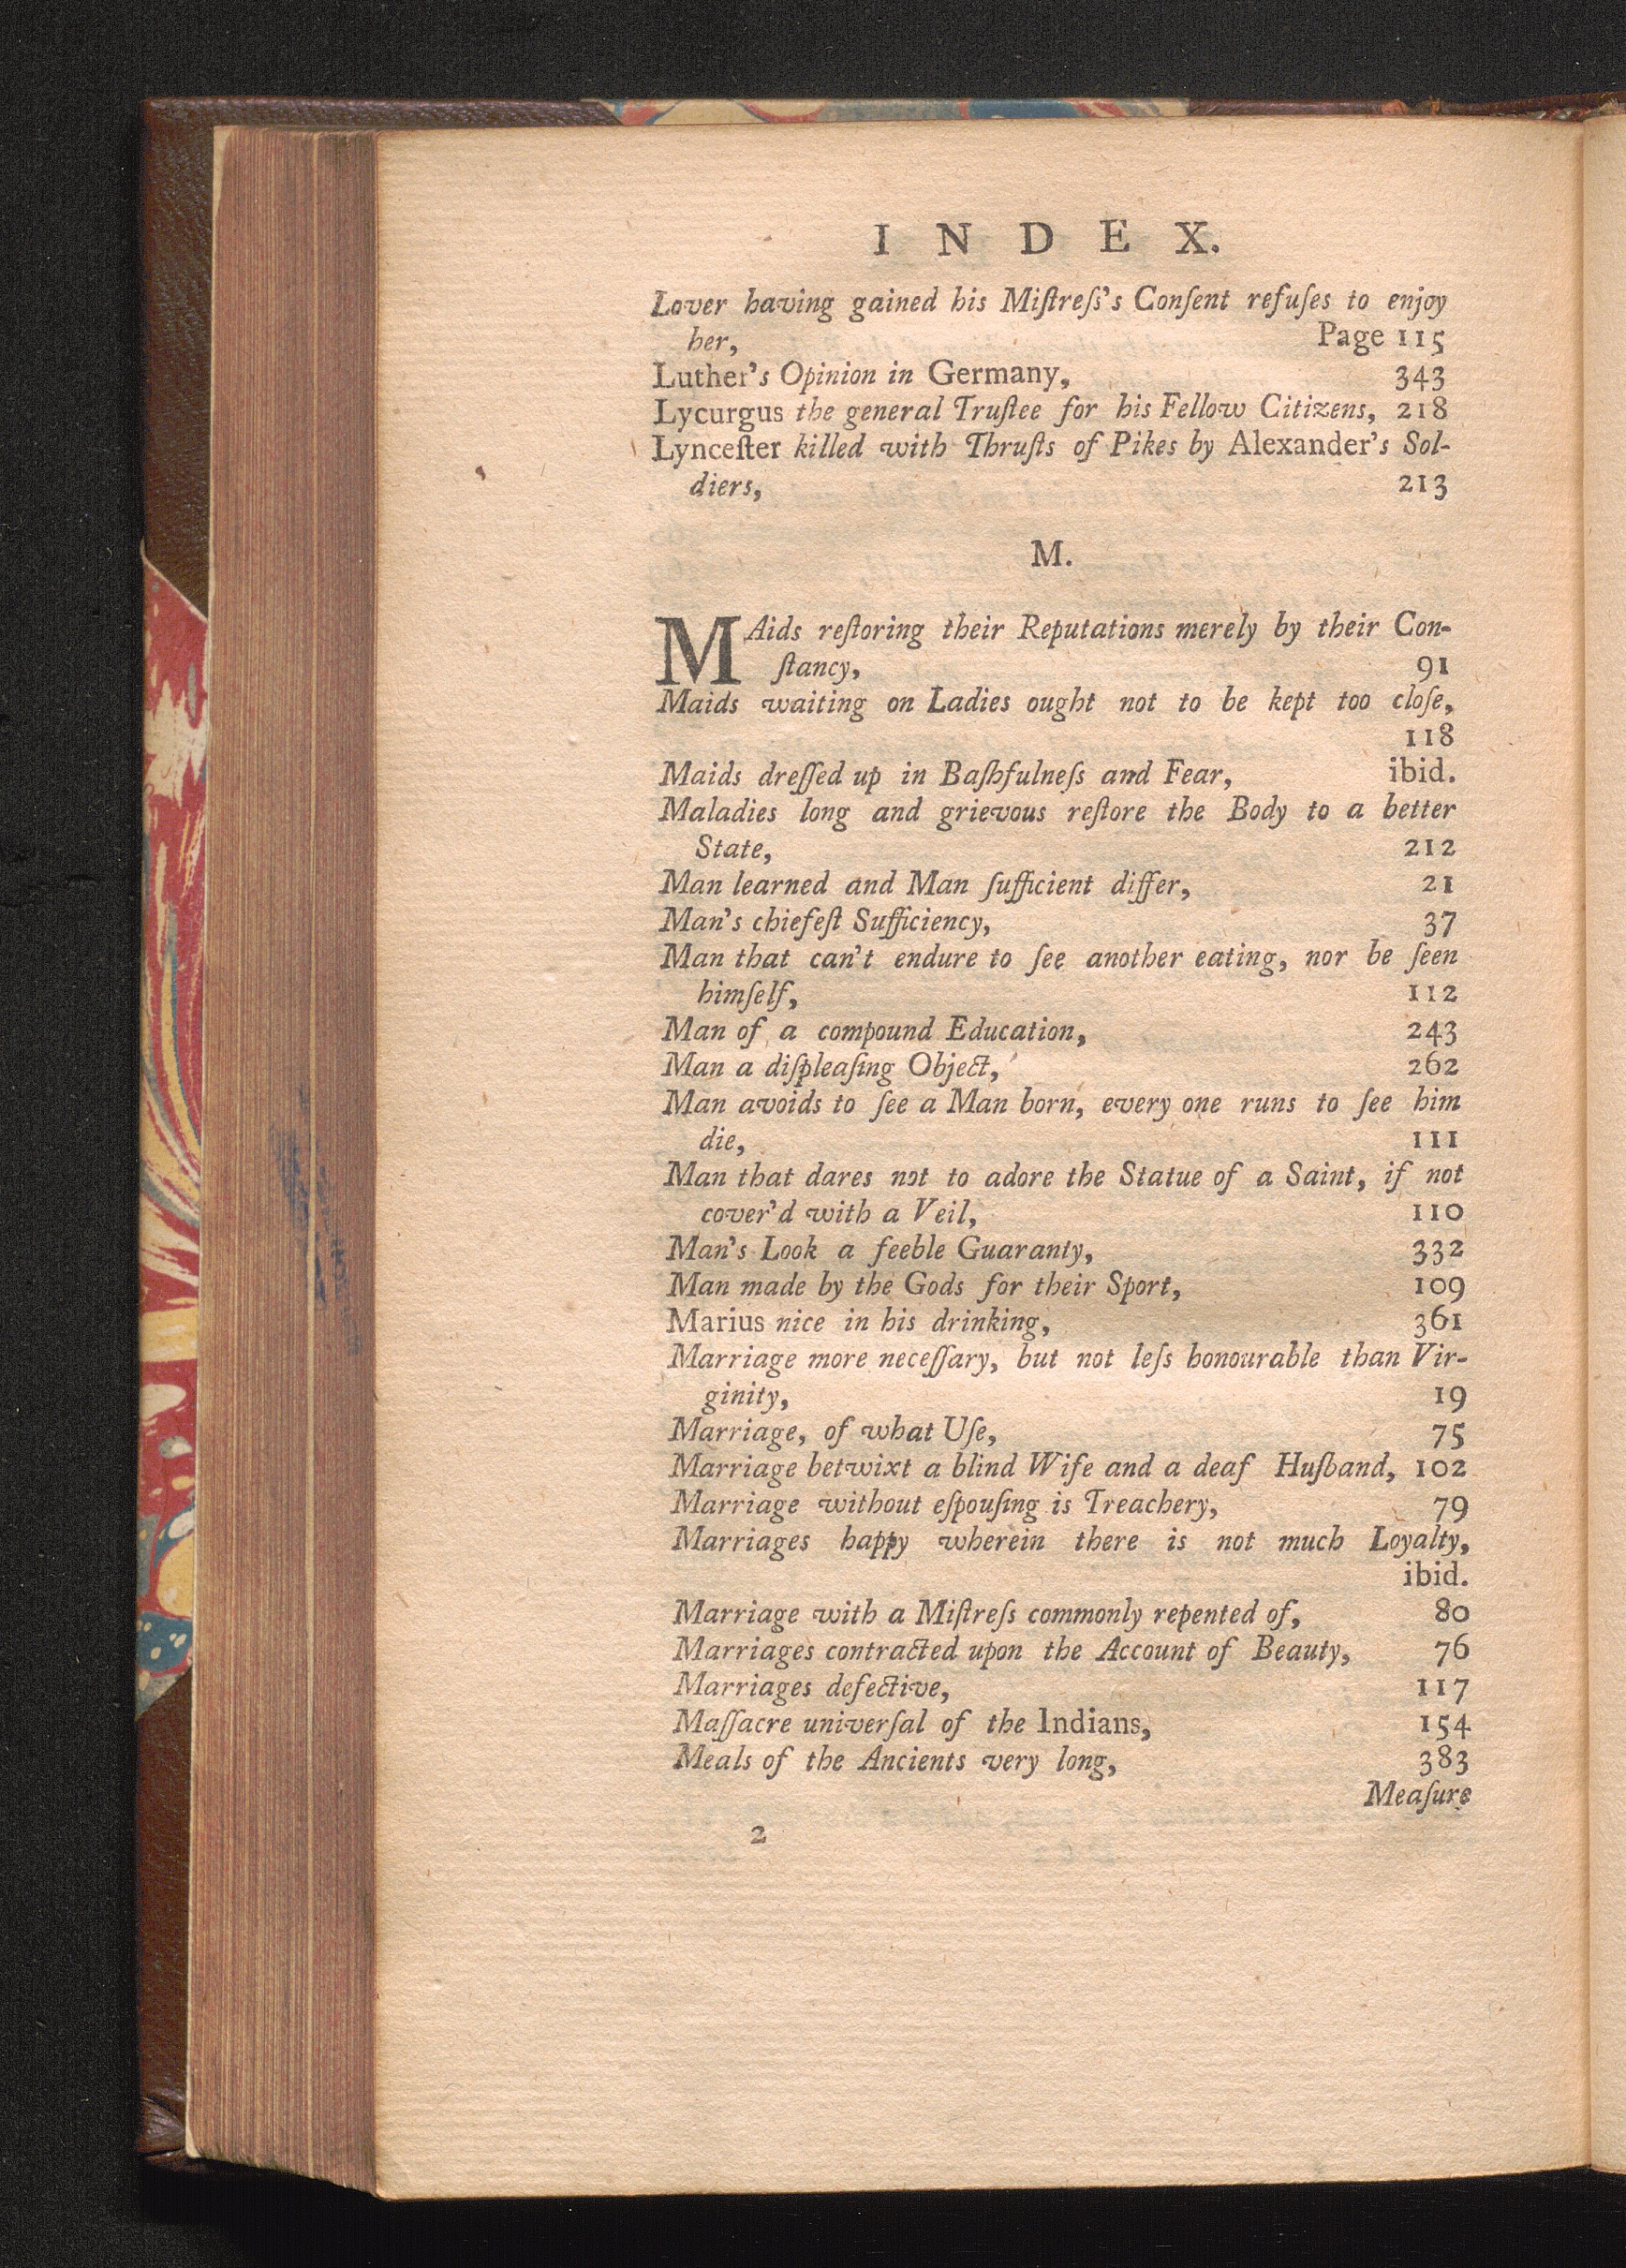 INDEX.
Lover having gained his Miſtreſs's Conſent refuſes to enjoy
her, Page 115
Luther's Opinion in Germany, 343
Lycurgus the general Truſtee for his Fellow Citizens, 218
Lynceſter killed with Thruſts of Pikes by Alexander's Sol-
diers, 213
M.
MAids reſtoring their Reputations merely by their Con-
ſtancy, 91
Maids waiting on Ladies ought not to be kept too cloſe,
118
Maids dreſſed up in Baſhfulneſs and Fear, ibid.
Maladies long and grievous reſtore the Body to a better
State, 212
Man learned and Man ſufficient differ, 21
Man's chiefeſt Sufficiency, 37
Man that can't endure to ſee another eating, nor be ſeen
himſelf, 112
Man of a compound Education, 243
Man a diſpleaſing Object, 262
Man avoids to ſee a Man born, every one runs to ſee him
die, 111
Man that dares not to adore the Statue of a Saint, if not
cover'd with a Veil, 110
Man's Look a feeble Guaranty, 332
Man made by the Gods for their Sport, 109
Marius nice in his drinking, 361
Marriage more neceſſary, but not leſs honourable than Vir-
ginity, 19
Marriage, of what Uſe, 75
Marriage betwixt a blind Wife and a deaf Huſband, 102
Marriage without eſpouſing is Treachery, 79
Marriages happy wherein there is not much Loyalty,
ibid.
Marriage with a Miſtreſs commonly repented of, 80
Marriages contracted upon the Account of Beauty, 76
Marriages defective, 117
Maſſacre univerſal of the Indians, 154
Meals of the Ancients very long, 383
Meaſure
2